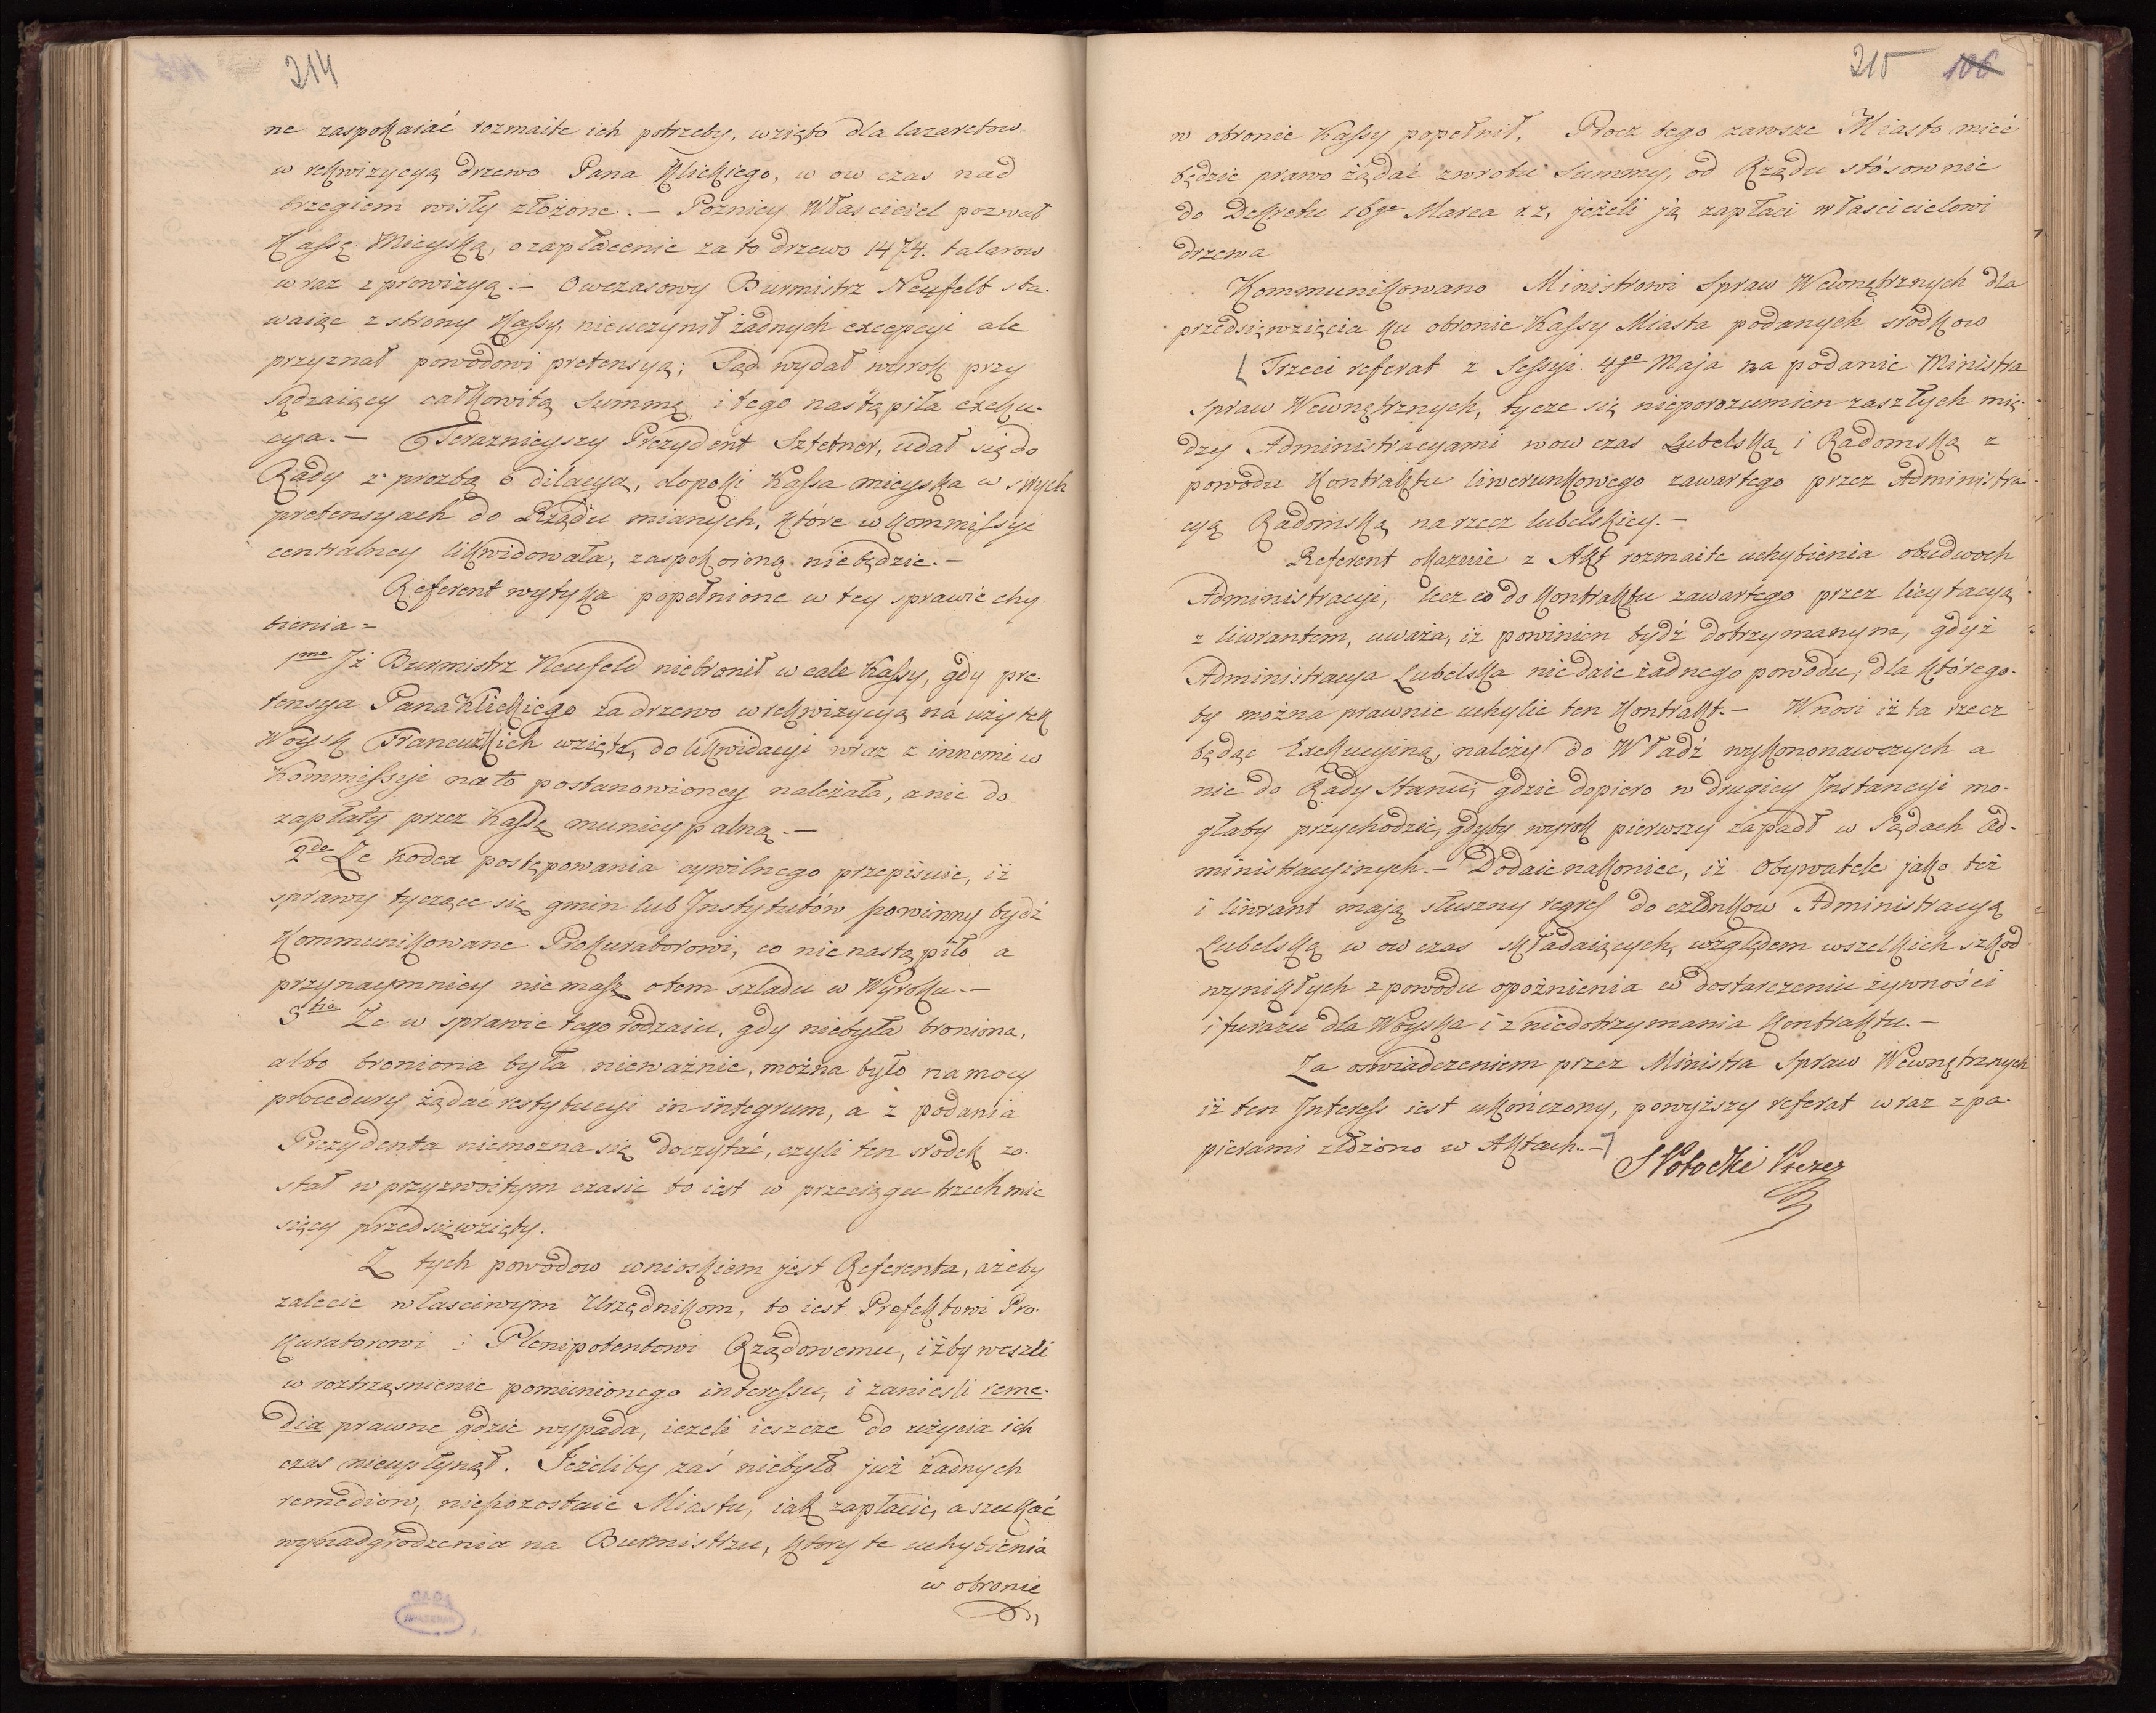 214
ne zaspokaiać rozmaite ich potrzeby, wzięto dla lazaretow
w rekwizycyą drzewo Pana Klickiego, w ow czas nad
brzegiem wisły złożone. — Pożnicy Własciciel pozwał
Kassę Mieyską, o zapłacenie za to drzewo 1474. talarow
wraz z prowizyą. — Owczasowy Burmistrz Neufelt sta-
waiąc z strony Kassy, nieuczynił żadnych excepcyi ale
przyznał powodowi pretensyą; Sąd wydał wyrok przy
sądzaiący całkowitą Summę i tego nastąpiła exeku-
cya. — Teraznieyszy Prezydent Sztetner, udał się do
Rady z prozbą o dilacyą, dopoki Kassa mieyska w swych
pretensyach do Rządu mianych, które w kommissyi
centralney likwidowała, zaspokoioną niebędzie. —
Referent wytyka popełnione w tey sprawie chy-
bienia =
1mo Iż Burmistrz Neufeld niebronił wcale Kassy, gdy pre-
tensya Pana Klickiego za drzewo w rekwizycyą na użytek
Woysk Francuzkich wzięte, do likwidacyi wraz z innemi w
Kommissyi na to postanowioney należała, a nie do
zapłaty przez Kassę municypalną. —
2do Że Kodex postępowania cywilnego przepisuie, iż
sprawy tyczące się gmin lub Instytutów powinny bydź
Kommunikowane Prokuratorowi, co nie nastąpiło a
przynaymniey nie masz o tem szladu w Wyroku. —
3tio Że w sprawie tego rodzaiu, gdy niebyła broniona,
albo broniona była nieważnie, można było na mocy
procedury żądać restytucyi in integrum, a z podania
Prezydenta niemozna się doczytać, czyli ten srodek zo-
stał w przyzwoitym czasie to iest w przeciągu trzech mie
sięcy przedsięwzięty.
Z tych powodow wnioskiem jest Referenta, ażeby
zalecić własciwym Urzędnikom, to iest Prefektowi Pro-
kuratorowi i Plenipotentowi Rządowemu, iżby weszli
w roztrząsnienie pomienionego interessu, i zaniesli reme-
dia prawne gdzie wypada, ieżeli ieszcze do użycia ich
czas nieupłynął. Jeżeliby zaś niebyło już żadnych
remediow, niepozostaie Miastu, iak zapłacić, a szukać
wynadgrodzenia na Burmistrzu, ktory te uchybienia
w obronie
215 106
w obronie Kassy popełnił. Procz tego zawsze Miasto mieć
będzie prawo żądać zwrotu Summy, od Rządu stósownie
do Dekretu 16go Marca r. z. jeżeli ją zapłaci własciciclowi
drzewa
Kommunikowano Ministrowi Spraw Wewnętrznych dla
przedsięwzięcia ku obronie Kassy Miasta podanych srodkow
Trzeci referat z Sessyi 4go Maja na podanie Ministra
Spraw Wewnętrznych, tycze się nieporozumien zaszłych mię-
dzy Administracyami wow czas Lubelską i Radomską z
powodu Kontraktu liwerunkowego zawartego przez Administra-
cyą Radomską na rzecz lubelskiey. —
Referent okazuie z Akt rozmaite uchybienia obudwoch
Administracyi, lecz co do Kontraktu zawartego przez licytacyą
z liwrantem, uważa, iż powinien bydź dotrzymanym, gdyż
Administracya Lubelska niedaie żadnego powodu, dla którego-
by można prawnie uchylić ten Kontrakt. — Wnosi iż ta rzecz
będąc Exekucyiną, należy do Władź wykononawczych a
nie do Rady Stanu, gdzie dopiero w drugiey Instancyi mo-
głaby przychodzić, gdyby wyrok pierwszy zapadł w Sądach Ad-
ministracyinych. — Dodaie nakoniec, iż Obywatele jako też
i liwrant mają słuszny regres do członkow Administracyą
Lubelską w ow czas składaiących, względem wszelkich szkod
wynikłych z powodu opoźnienia w dostarczeniu żywności
i furazu dla Woyska i z niedotrzymania Kontraktu. —
Za oswiadczeniem przez Ministra Spraw Wewnętrznych
iż ten Interess iest ukończony, powyższy referat wraz z pa-
pierami złożono w Aktach. —
S Potocki Prezes